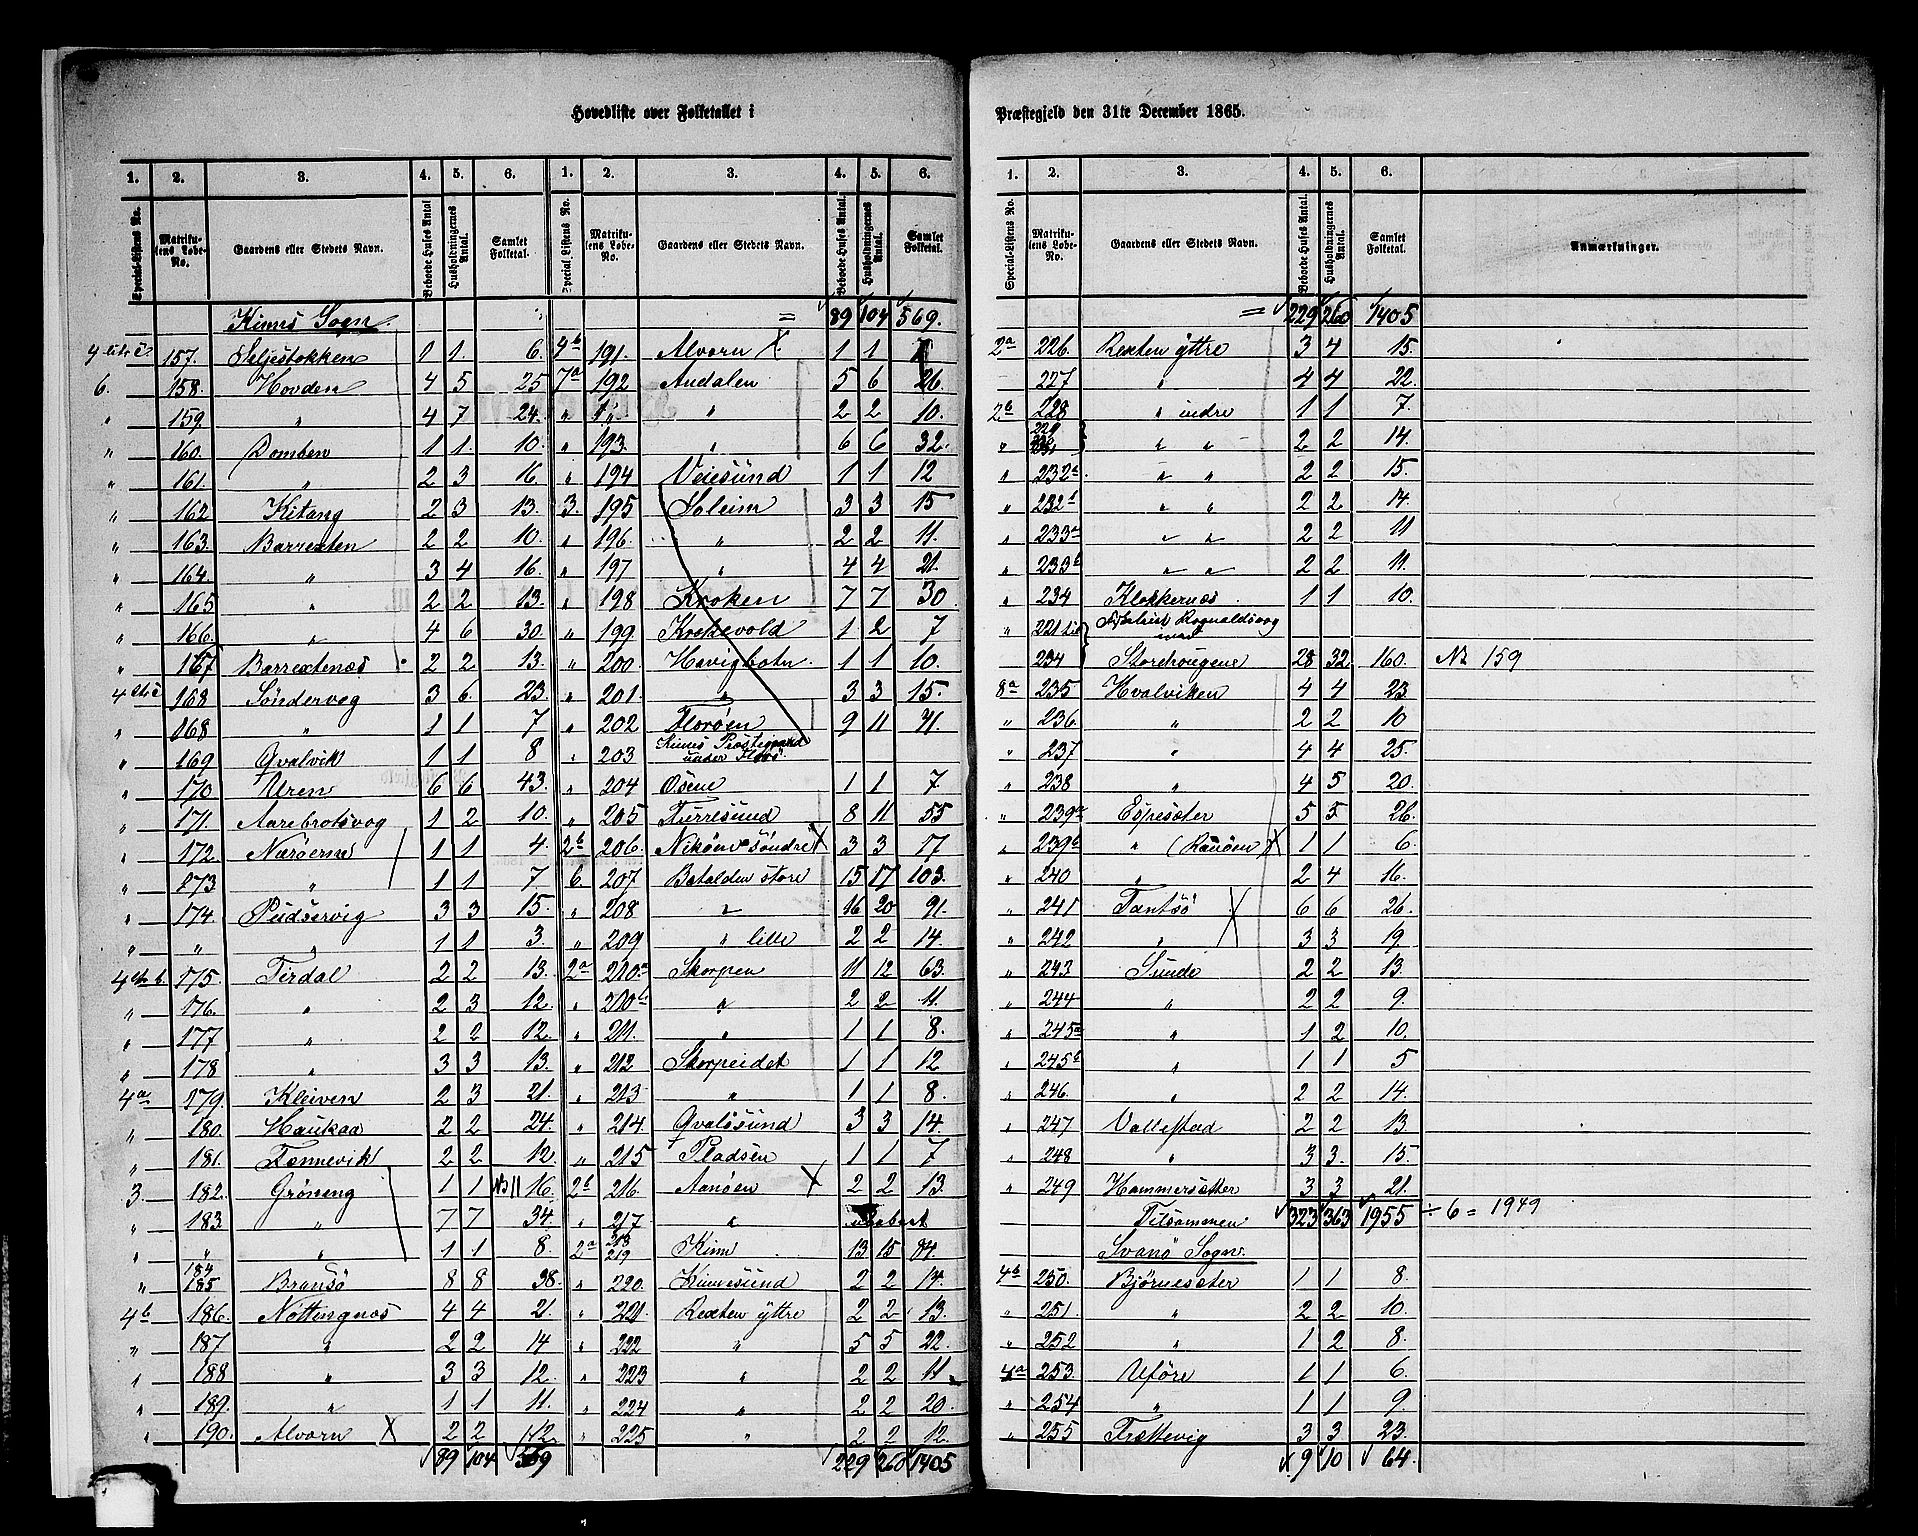 Hovedliste over Folketallet i Præstegjeld den 31te December 1865.
1. 2. 3. 4. 5. 6. 1. 2. 3. 4. 5. 6.
Special-Listens No. Matrikulens Løbe-No. Gaardens eller Stedets Navn. Beboede Huses Antal Husholdningernes Antal. Samlet Folketal. Special Listens No. Matrikulens Løbe-No. Gaardens eller Stedets Navn. Beboede Huses Antal. Husholdningernes Antal. Samlet Folketal.
Kinns Sogn. = 89 104 569.
157. Seljestokken 1 1. 6. 4b 191. Alvorn X. 1 1 7
6. 158. Hovden 4 5 25 7a 192 Andalen 5 6 26
" 159. " 4 7 24. " " " 2 2 10.
" 160. Domben 1 1. 10. " 193. " 6 6 32.
" 161. " 2 3 16. " 194 Veiesund 1 1 12
" 162 Kitang 2 3 13. 3. 195 Soleim 3 3 15
" 163. Barrexten 2 2 10. " 196. " 2 2 11.
" 164. " 3 4 16. " 197 " 4 4 21.
" 165 " 2 2 13. " 198 Kroken 7 7 30
" 166. " 4 6 30. " 199. Krokevold 1 2 7
" 167 Barrextenæs 2 2 13. " 200. Havigbotn 1 1 10.
168 Söndervog 3 6. 23. " 201. " 3 3 15.
" 168 " 1 1 7 " 202 Florøen 9 11 71.
" 169 Qvalvik 1 1 8 " 203 Kinns Præstegaard under Florö
" 170 Uren 6 6 43. " 204 Osene 1 1 7
" 171. Aarebrotsvog 1 2 10. " 205 Furresund 8 11 55
" 172 Nærøerne 1 1 4. 2b 206. Nikøen söndre X 3 3 17
" 173 " 1 1 7 6. 207 Batalden store 15 17 103.
" 174. Pudservig 3 3 15. " 208 " 16 20 91.
" " " 1 1 3. " 209 " lille 2 2 14.
175. Tirdal 2 2 13. 2a 210a Skorpen 11 12 63
" 176. " 2 3 12. " 210b " 2 2 11.
" 177 " 2 2 12. " 211. " 1 1 8.
" 178 " 3 3 13. " 212 Skorpeidet 1 1 12
4a 179. Kleiven 2 3 21. " 213 " 1 1 8.
" 180. Haukaa 2 2 24. " 214. Qvalösund 3 3 14.
" 181. Fennevik 2 2 12. " 215 Pladsen 1 1 7
3. 182. Gröneng 1 1 16. 2b 216. Aanöen X 2 2 13.
" 183. " 7 7 34. " 217. " ubeboet
" " " 1 1 8. 2a 218 219 Kinn 13 15 84.
" 184 185 Bransö 8 8 38. " 220. Kinnesund 2 2 14.
4b 186. Nöttingnæs 4 4 21. " 221. Rexten yttre 2 2 13.
" 187 " 2 2 14 " 222 " 5 5 22.
" 188 " 3 3 12. " 223 " 2 2 11
" 189. " 1 1 11. " 224 " 2 2 20.
" 190. Alvorn X 2 2 12. " 225 " 2 2 12.
89 104 569 229 260 1405
1. 2. 3. 4. 5. 6.
Special-Listens No. Matrikulens Løbe-No. Gaardens eller Stedets Navn. Beboede Huses Antal. Husholdningernes Antal. Samlet Folketal. Anmærkninger.
= 229 260 1405
2a 226. Rexten yttre 3 4 15.
227 " 4 4 22.
2b 228 " indre 1 1 7.
" 229 " " 2 2 14.
" 232a " " 2 2 15.
" 232b " " 2 2 14.
" 233a " " 2 2 11
" 233b " " 2 2 11.
" 234 Klokkernæs 1 1 10.
" 221 til 234 Rognaldsvog med Storehougene 28 32 160. No 159
8a 235 Hvalviken 4 4 23
" 236. " 2 2 10
" 237 " 4 4 25.
" 238 " 4 5 20.
" 239a Espesæter 5 5 26.
" 239b " (Ranöen) X 1 1 6.
" 240 " 2 4 16.
" 241 Tantsö X 6 6 26.
" 242 " 3 3 19.
" 243 Sunde 2 2 13.
" 244 " 2 2 9.
" 245a " 1 2 10.
" 245b " 1 1 5
" 246. " 2 2 14.
" 247 Vallestad 2 2 13.
" 248 " 3 3. 15.
" 249 Hammersætter 3 3 21.
Tilsammen 323 363 1955 ÷ 6 = 1949
Svanö Sogn.
4b 250. Bjørnesæter 1 1 8.
" 251. " 2 2 10.
" 252 " 1 2 8.
4a 253. Uföre 1 1 6.
" 254 " 1 1 9.
" 255 Trættevig 3 3 23.
9 10 64.